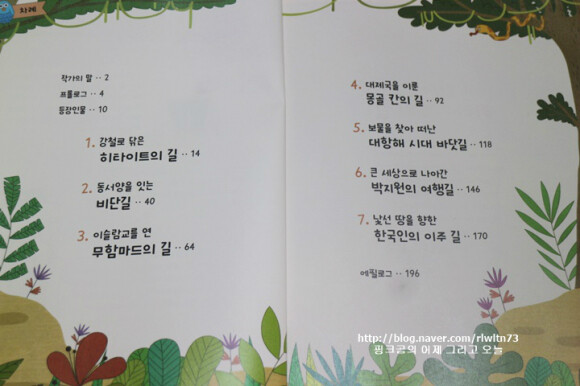 차례
작가의 말 ·· 2
프롤로그 ·· 4
등장인물 ·· 10
1. 강철로 닦은
히타이트의 길 ·· 14
2. 동서양을 잇는
비단길 ·· 40
3. 이슬람교를 연
무함마드의 길 ·· 64
4. 대제국을 이룬
몽골 칸의 길 ·· 92
5. 보물을 찾아 떠난
대항해 시대 바닷길 ·· 118
6. 큰 세상으로 나아간
박지원의 여행길 ·· 146
7. 낯선 땅을 향한
한국인의 이주 길 ·· 170
에필로그 ·· 196
http://blog.naver.com/rlwltn73
핑크곰의 어제 그리고 오늘